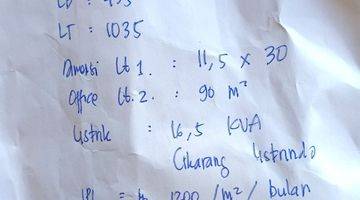 LT = 1035
Dimensi Lt 1. : 11,5 x 30
Office Lt. 2. : 90 m²
Listrik : 16,5 KVA
Cikarang Listrindo
IPL = 1200 /m²/ bulan